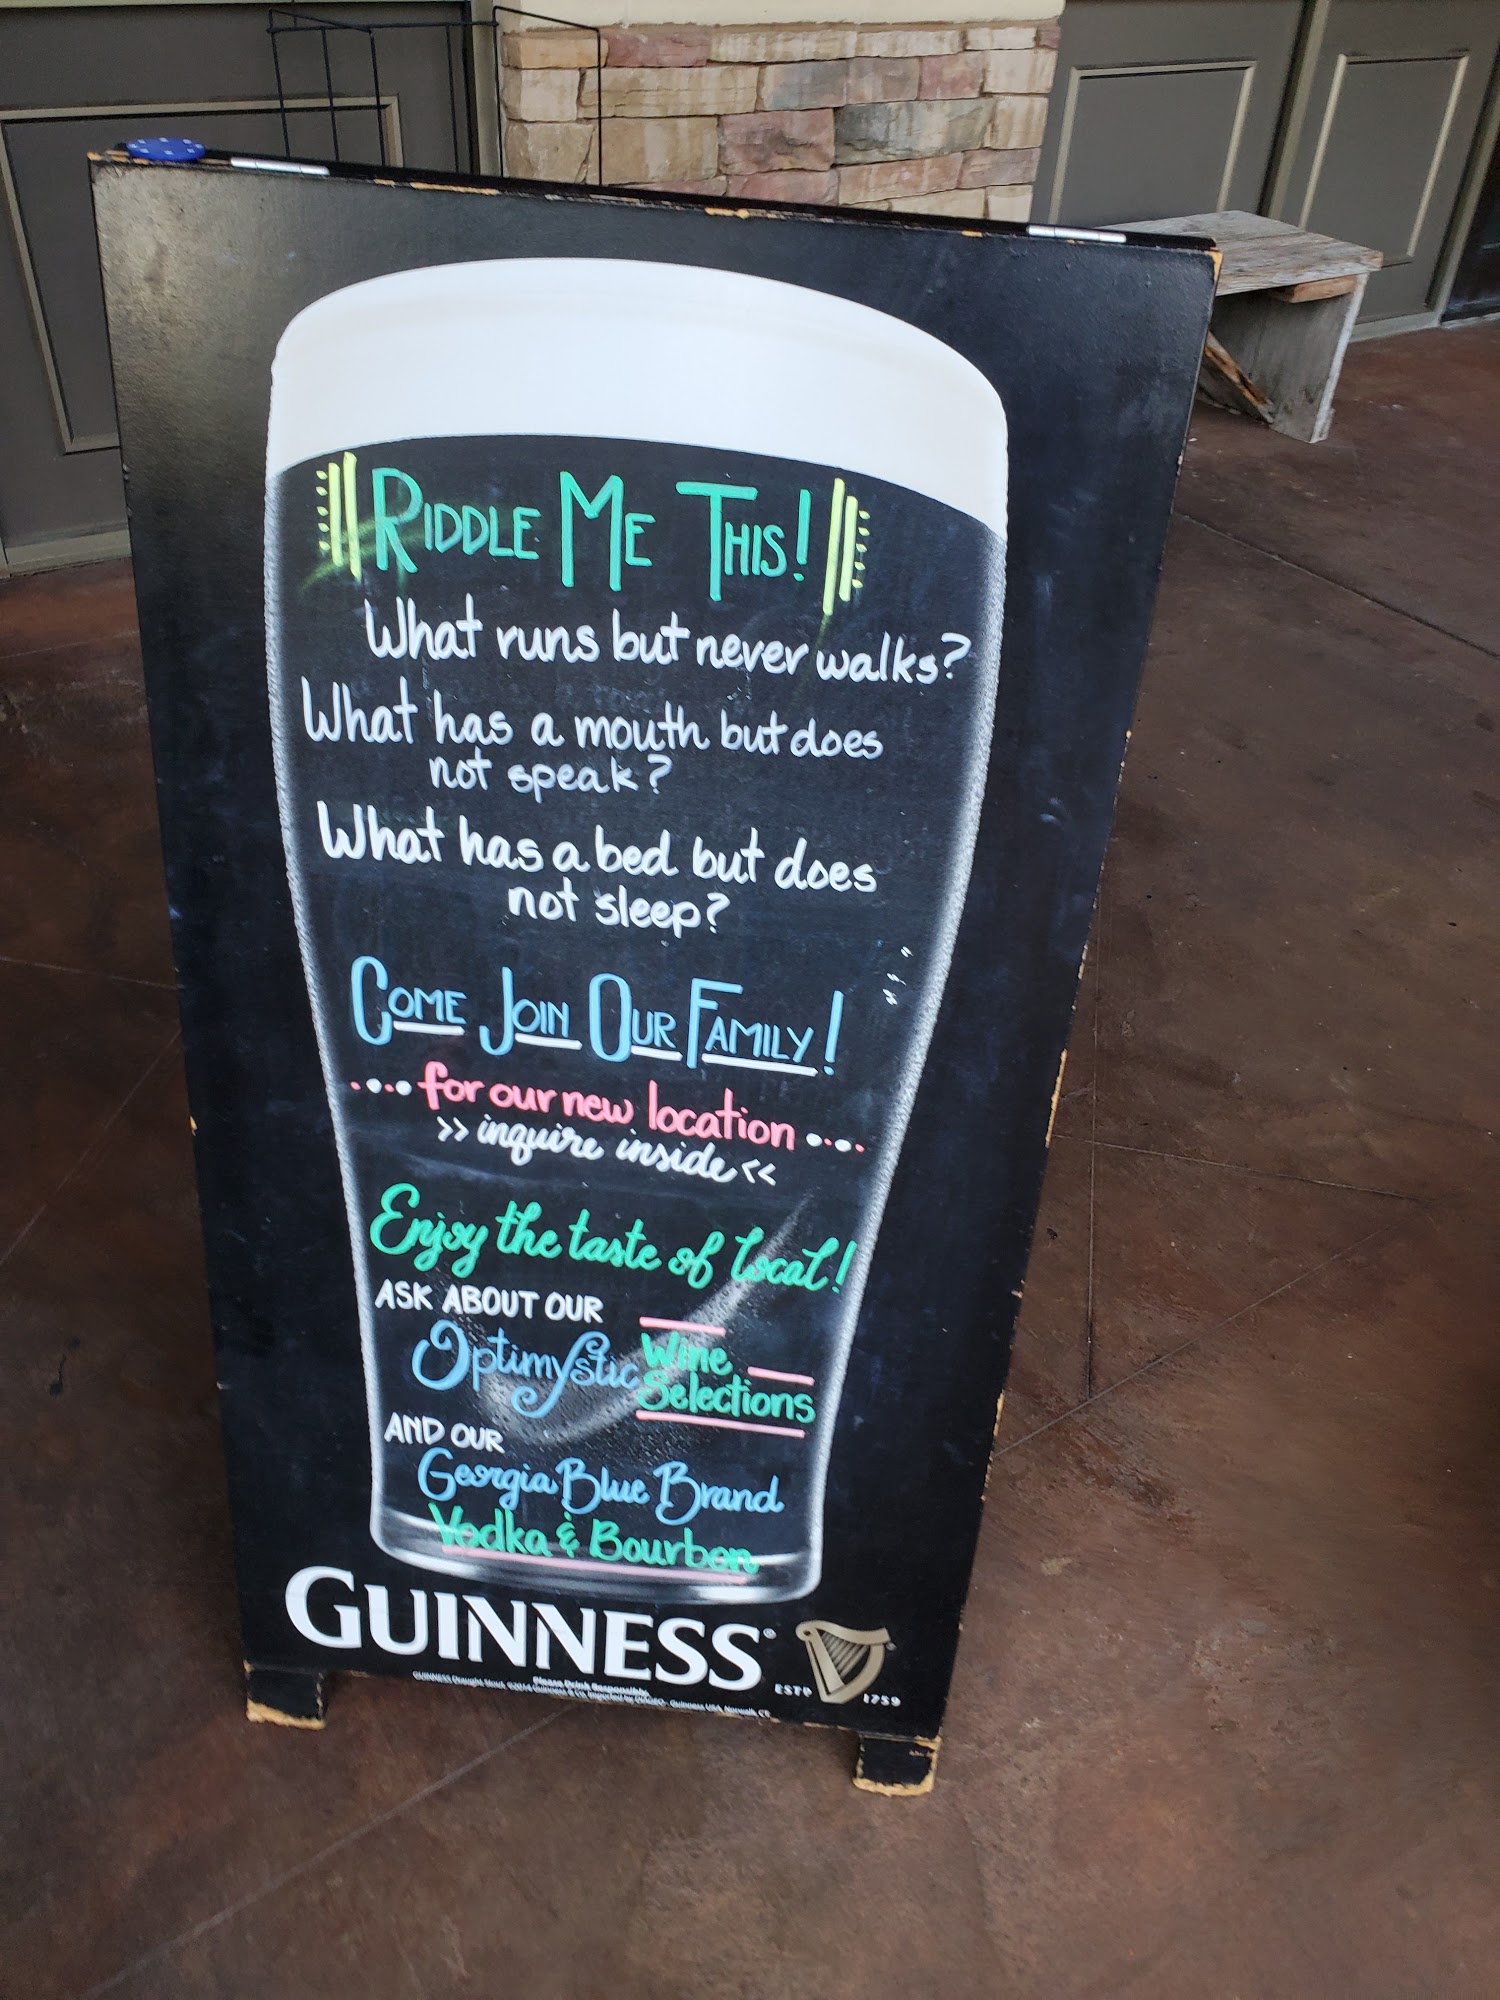 RIDDLE ME THIS!
What runs but never walks?
What has a mouth but does
not speak?
What has a bed but does
not sleep?
COME JOIN OUR FAMILY!
for our new location
>> inquire inside <<
Enjoy the taste of local!
ASK ABOUT OUR
Optimystic Wine
Selections
AND OUR
Georgia Blue Brand
Vodka & Bourbon
GUINNESS®
ESTD 1759
Please Drink Responsibly.